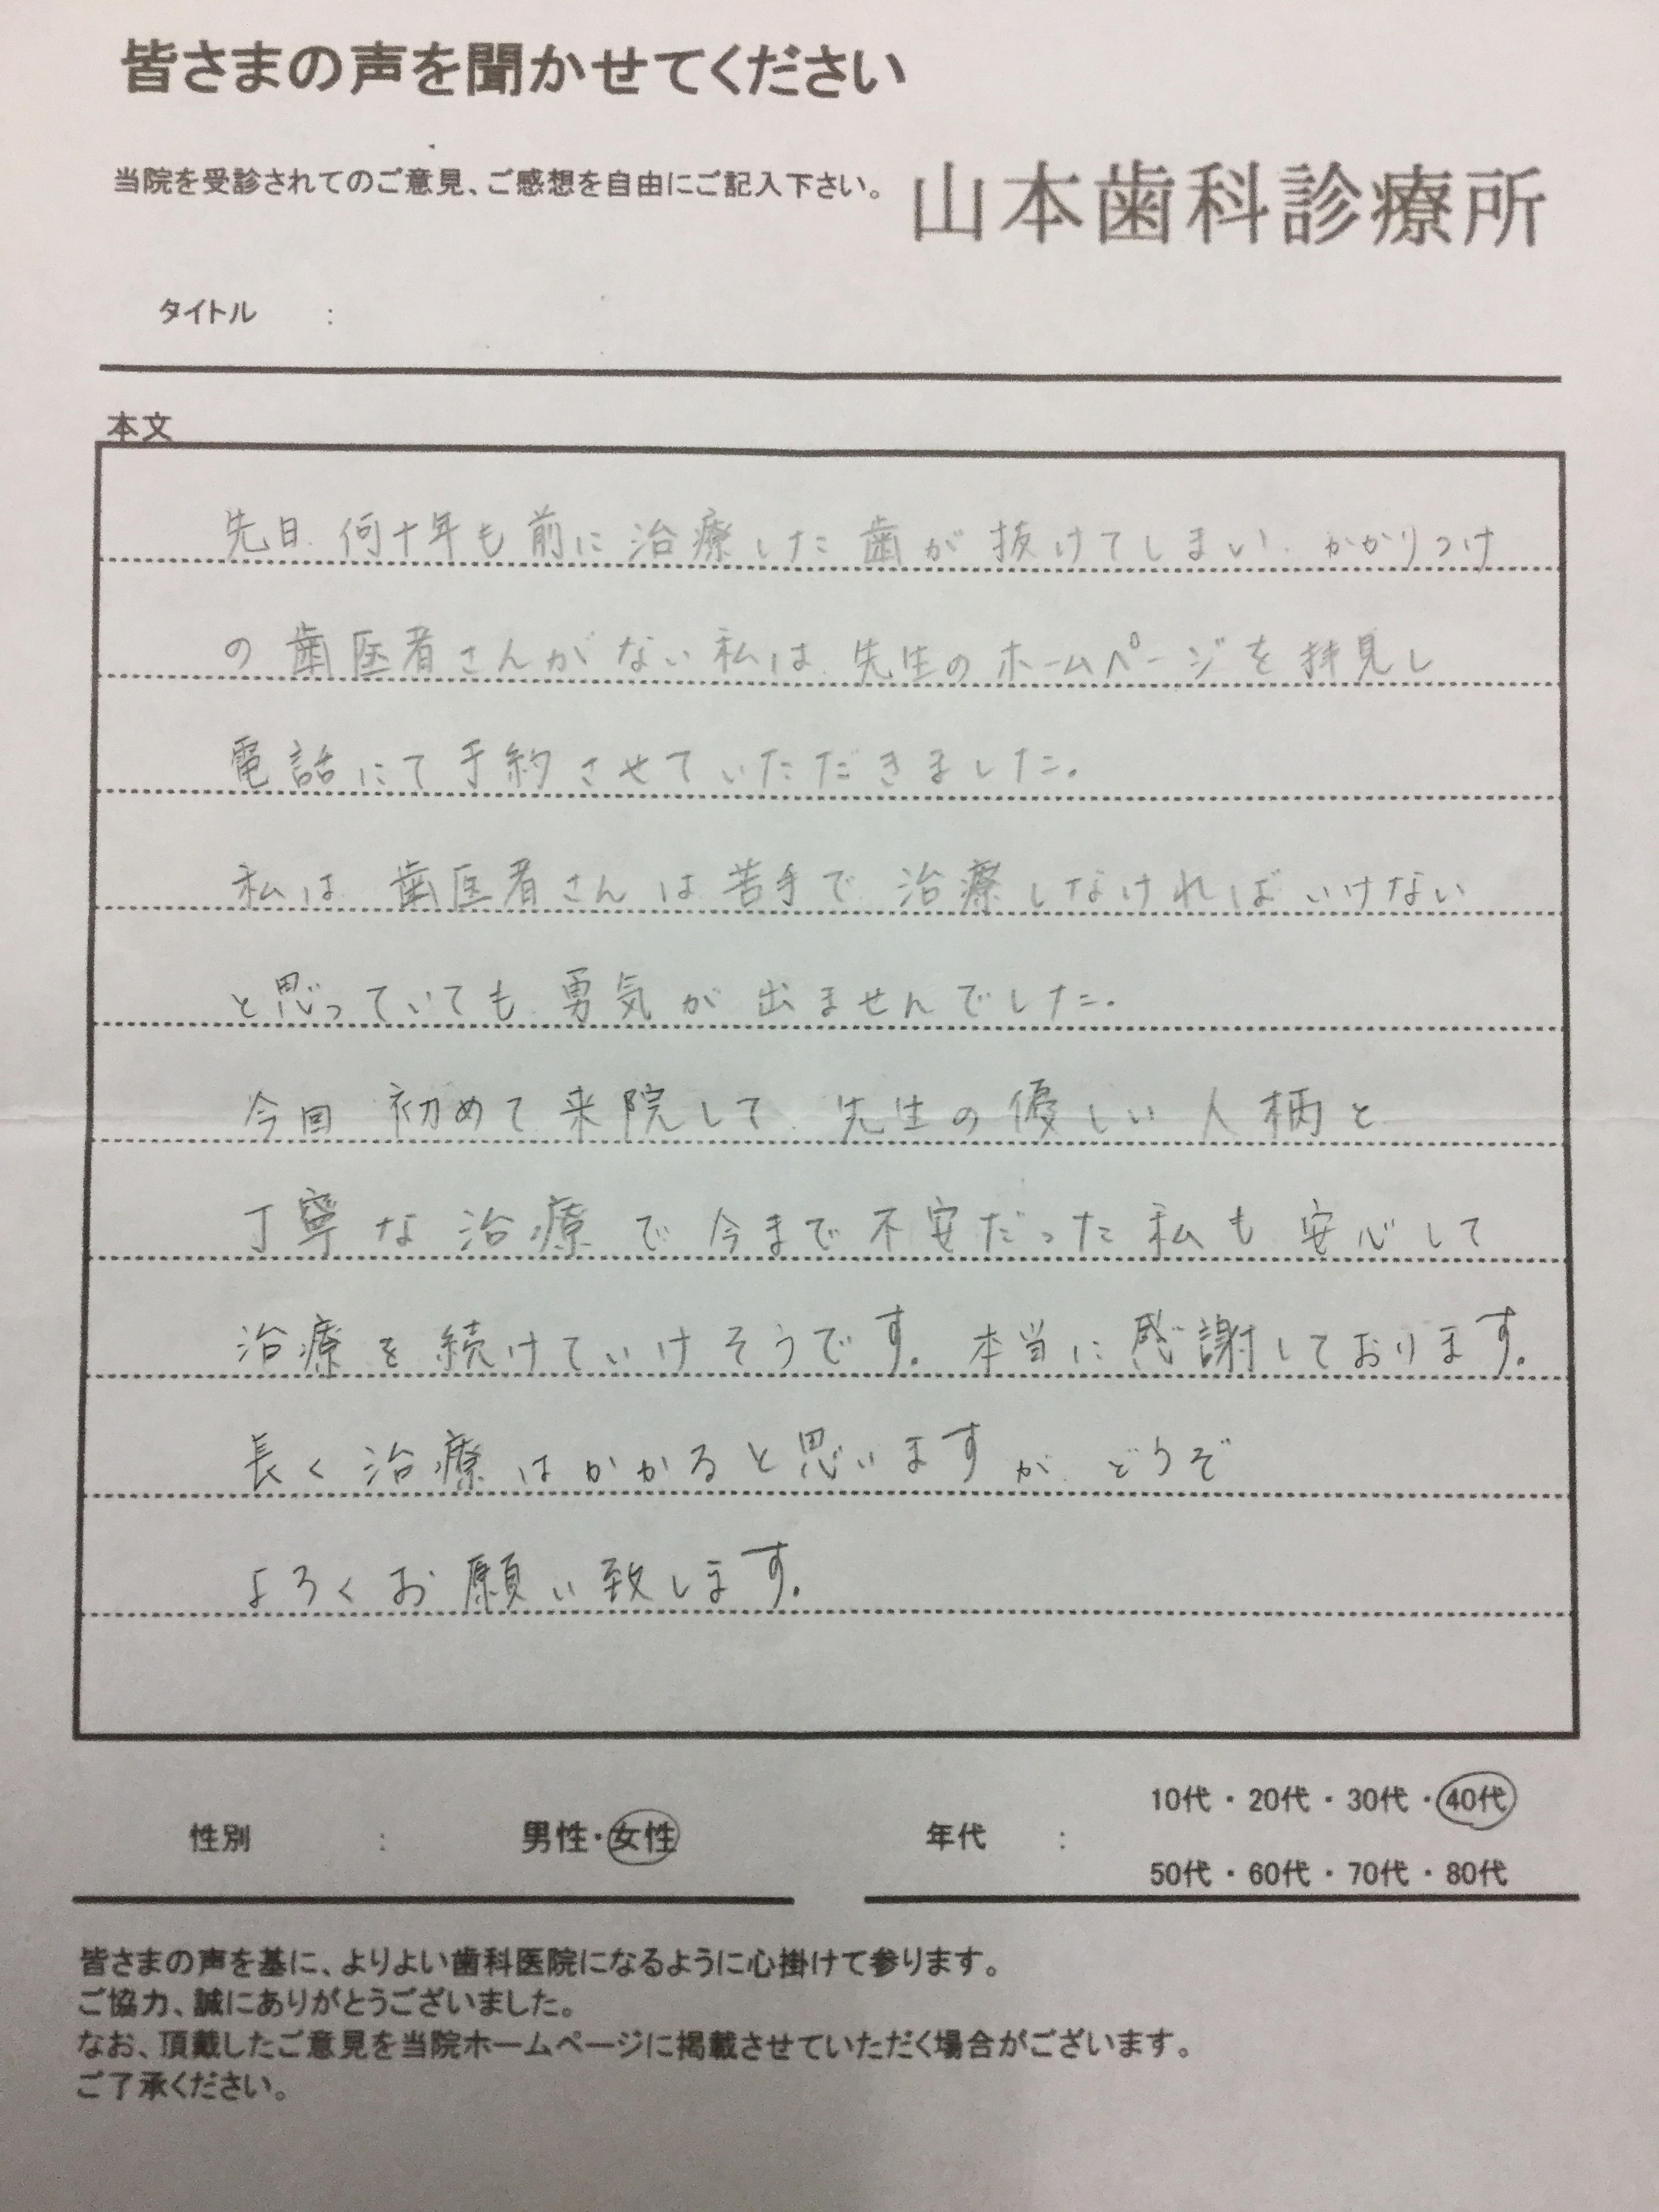 皆さまの声を聞かせてください
当院を受診されてのご意見、ご感想を自由にご記入下さい。
山本歯科診療所
タイトル :
本文
先日、何十年も前に治療した歯が抜けてしまい、かかりつけ
の歯医者さんがない私は、先生のホームページを拝見し
電話にて予約させていただきました。
私は、歯医者さんは苦手で、治療しなければいけない
と思っていても、勇気が出ませんでした。
今回、初めて来院して、先生の優しい人柄と
丁寧な治療で今まで不安だった私も安心して
治療を続けていけそうです。本当に感謝しております。
長く治療はかかると思いますが、どうぞ
よろくお願い致します。
性別 : 男性・女性
年代 : 10代・20代・30代・40代
50代・60代・70代・80代
皆さまの声を基に、よりよい歯科医院になるように心掛けて参ります。
ご協力、誠にありがとうございました。
なお、頂戴したご意見を当院ホームページに掲載させていただく場合がございます。
ご了承ください。